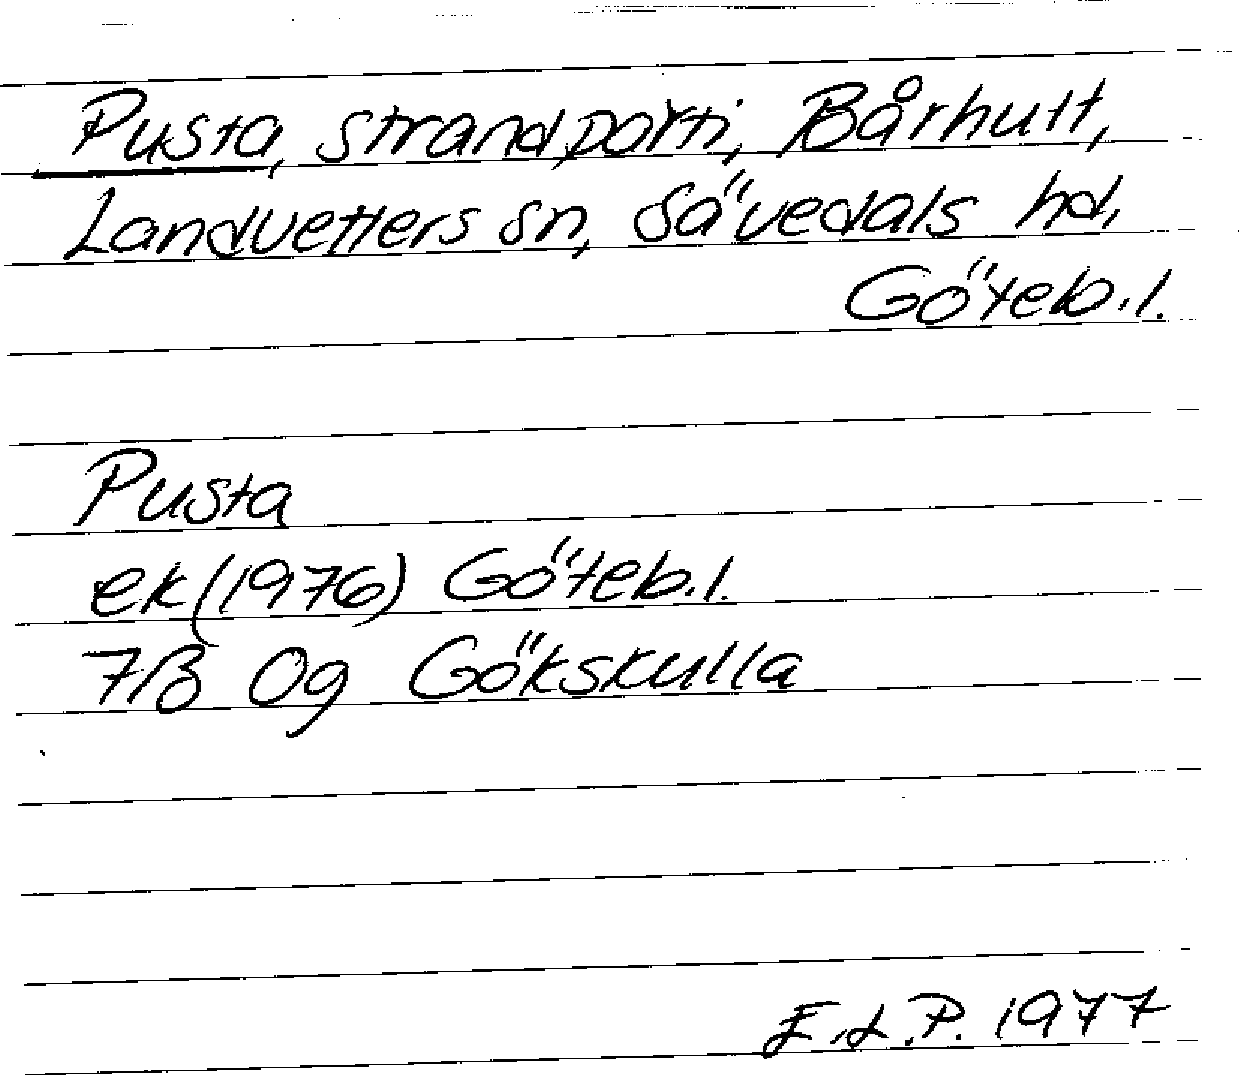 Pusta, strandparti, Bårhult,
Landvetters sn, Sävedals hd,
Göteb.l.
Pusta
ek (1976) Göteb.l.
7B 0g Gökskulla
E.L.P. 1977